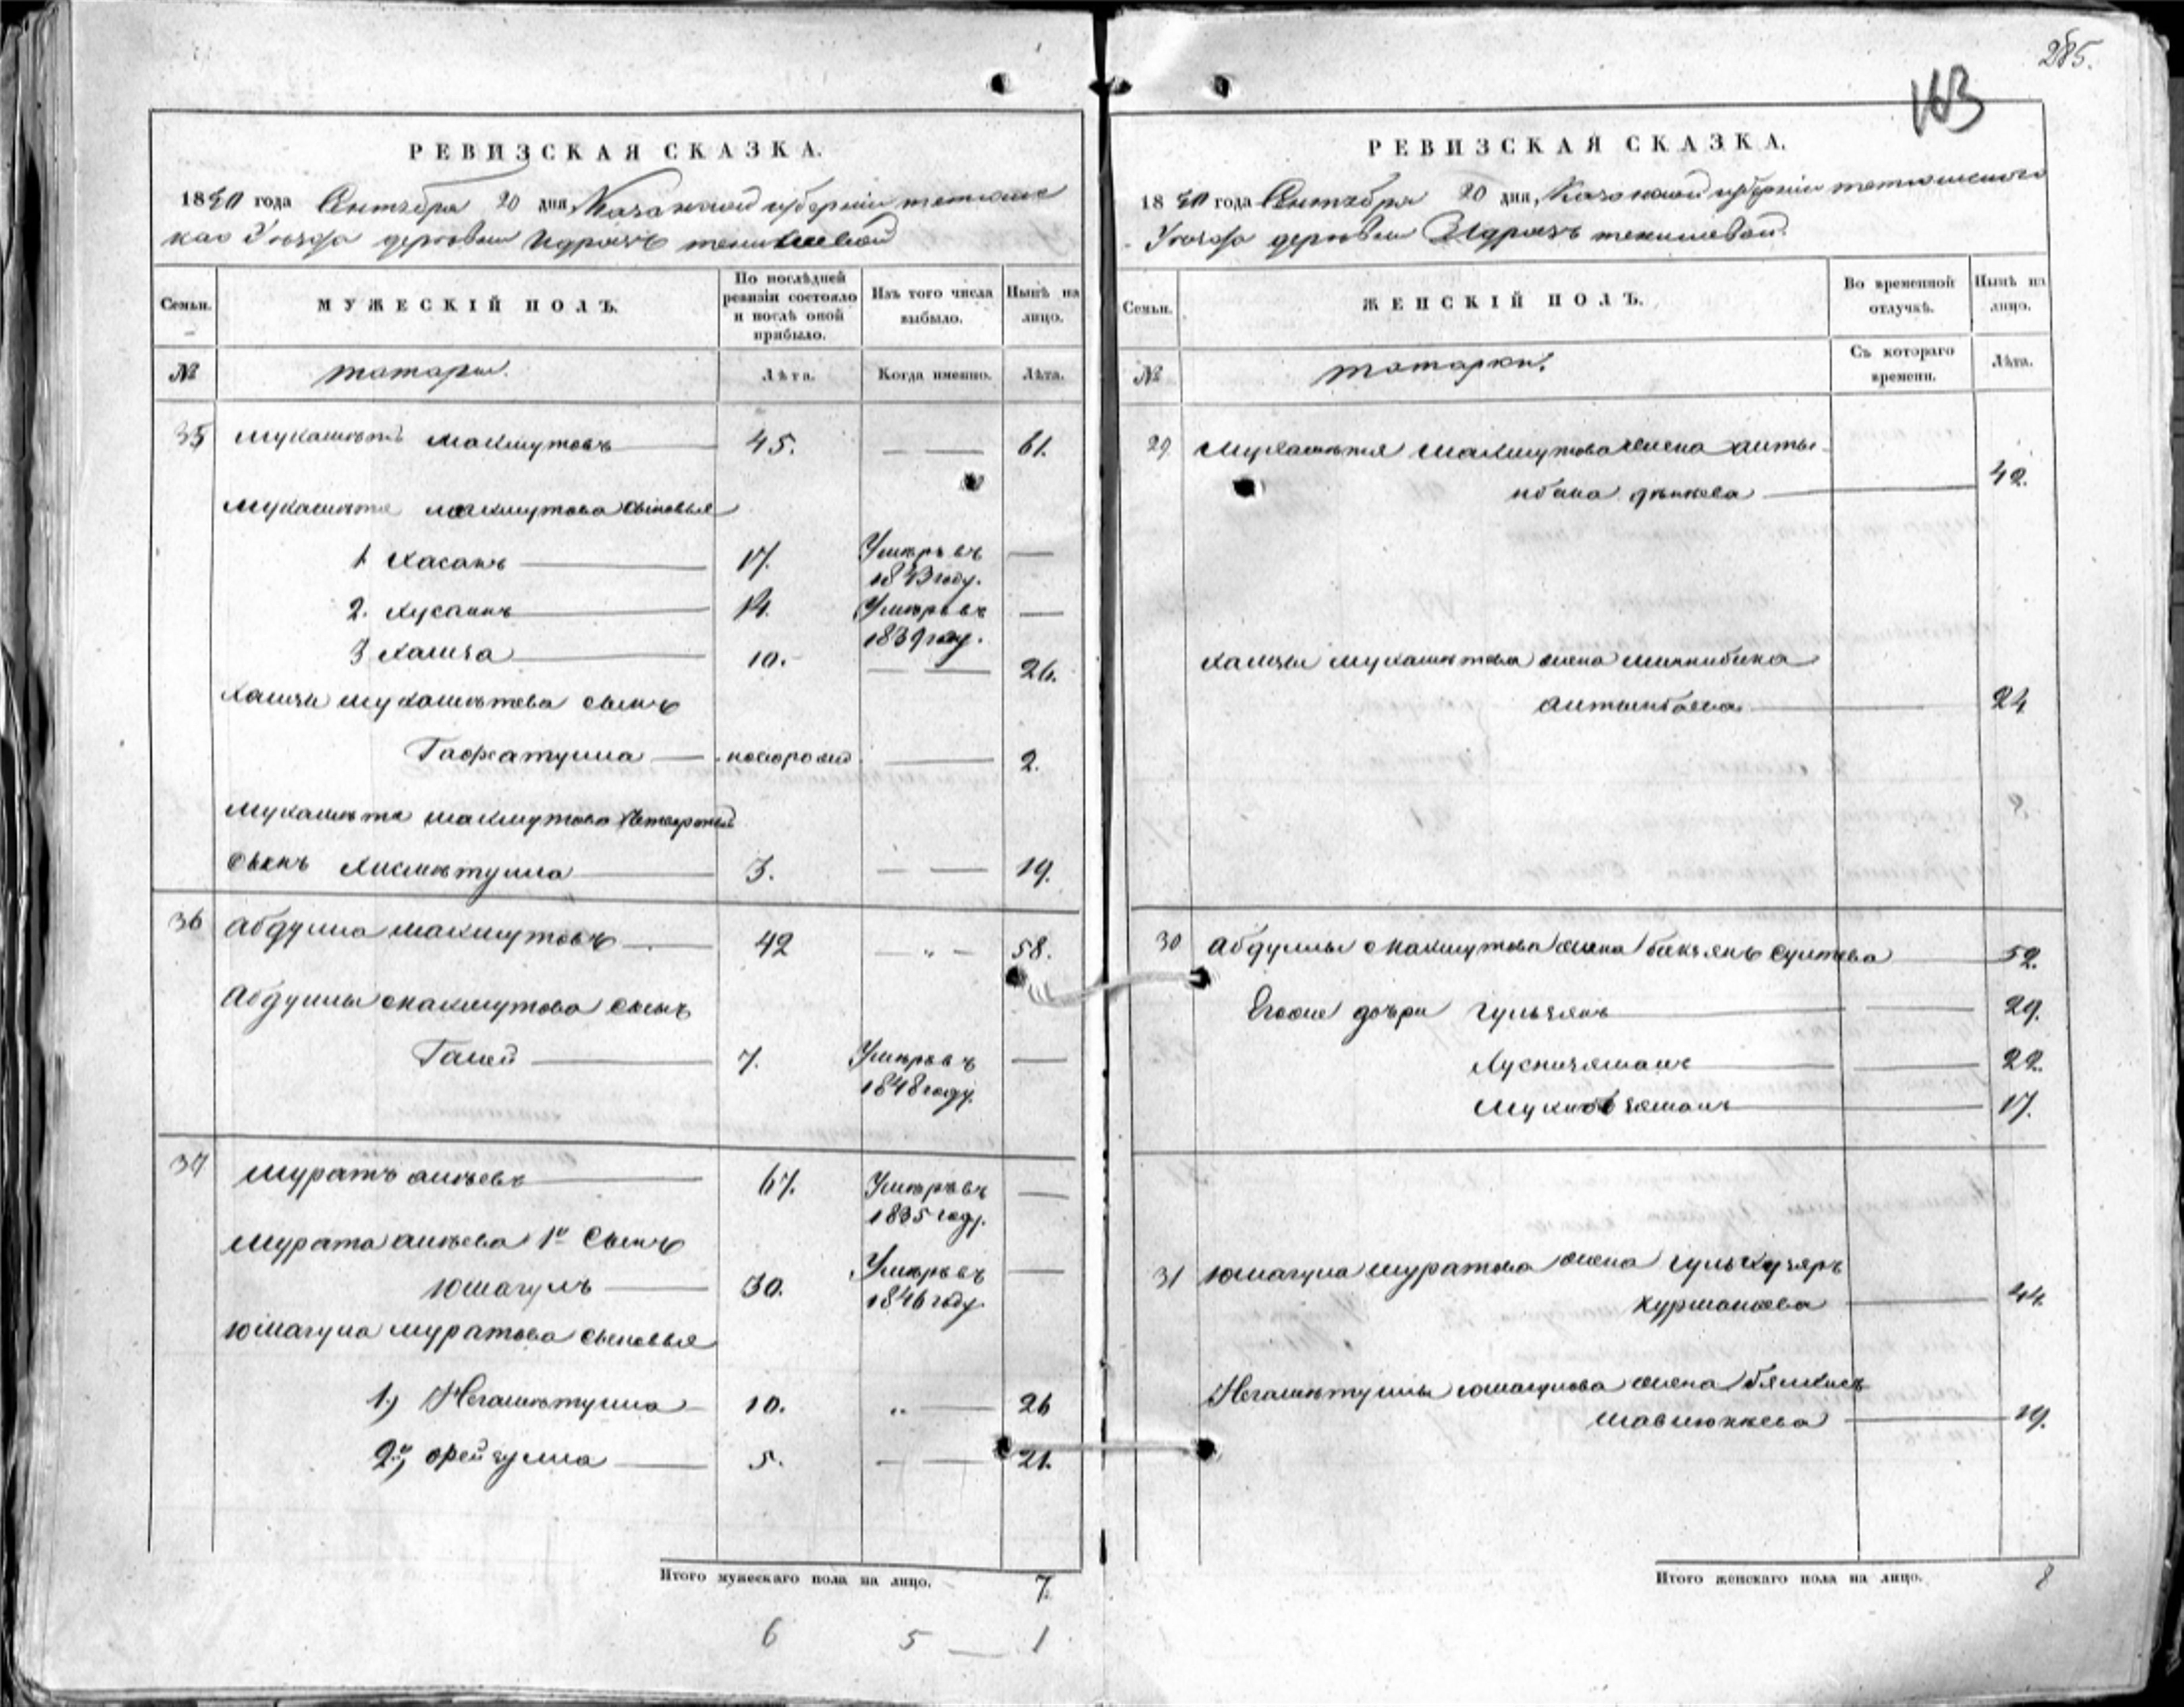 285.
163
РЕВИЗСКАЯ СКАЗКА.
1850 года Сентября 20 дня Казанской губернии тетюшс
каго Уезда деревни Идрясъ тенишевой
Семьи.
МУЖЕСКІЙ ПОЛЪ.
По послѣдней ревизіи состояло и послѣ оной прибыло.
Изъ того числа выбыло.
Нынѣ на лицо.
№
татары.
Лѣта.
Когда именно.
Лѣта.
35 Мухаметь Макмутовъ 45. 61.
Мухаметя макмутова сыновья
1 Хасанъ 17. Умеръ въ 1843 году.
2. Хусаинъ 14. Умеръ въ 1839 году.
3 Хамза 10. 26.
Хамзы мухаметева сынъ
Гафиатулла новорожд. 2.
Мухаметя макмутова четвертой
сынъ Хисметулла 3. 19.
36 Абдулла макмутовъ 42 58.
Абдуллы макмутова сынъ
Галей 7. Умеръ въ 1848 году
37 Муратъ алеевъ 67. Умеръ въ 1835 году.
Мурата алеева 1й сынъ
Юмагулъ 30. Умеръ въ 1846 году
Юмагула муратова сыновья
1, Негаметулла 10. 26
2й, Фейзулла 5. 21.
Итого мужескаго пола на лицо. 7.
6 5 1
РЕВИЗСКАЯ СКАЗКА.
1850 года Сентября 20 дня, Казанской губернии тетюшского
Уезда деревни Идрясъ тенишевой.
Семьи.
ЖЕНСКІЙ ПОЛЪ.
Во временной отлучкѣ.
Нынѣ на лицо.
№
татарки.
Съ котораго времени.
Лѣта.
29 Мухаметя Макмутова жена
42.
Хамзы мухаметева жена минлибика
24
30 Абдуллы Макмутова жена 52.
Егоже дочри Гульзянъ 29.
Хуснизяманъ 22.
17.
31 Юмагула муратова жена
Курманаева 44.
Негаметуллы юмагулова жена
19.
Итого женскаго пола на лицо. 8